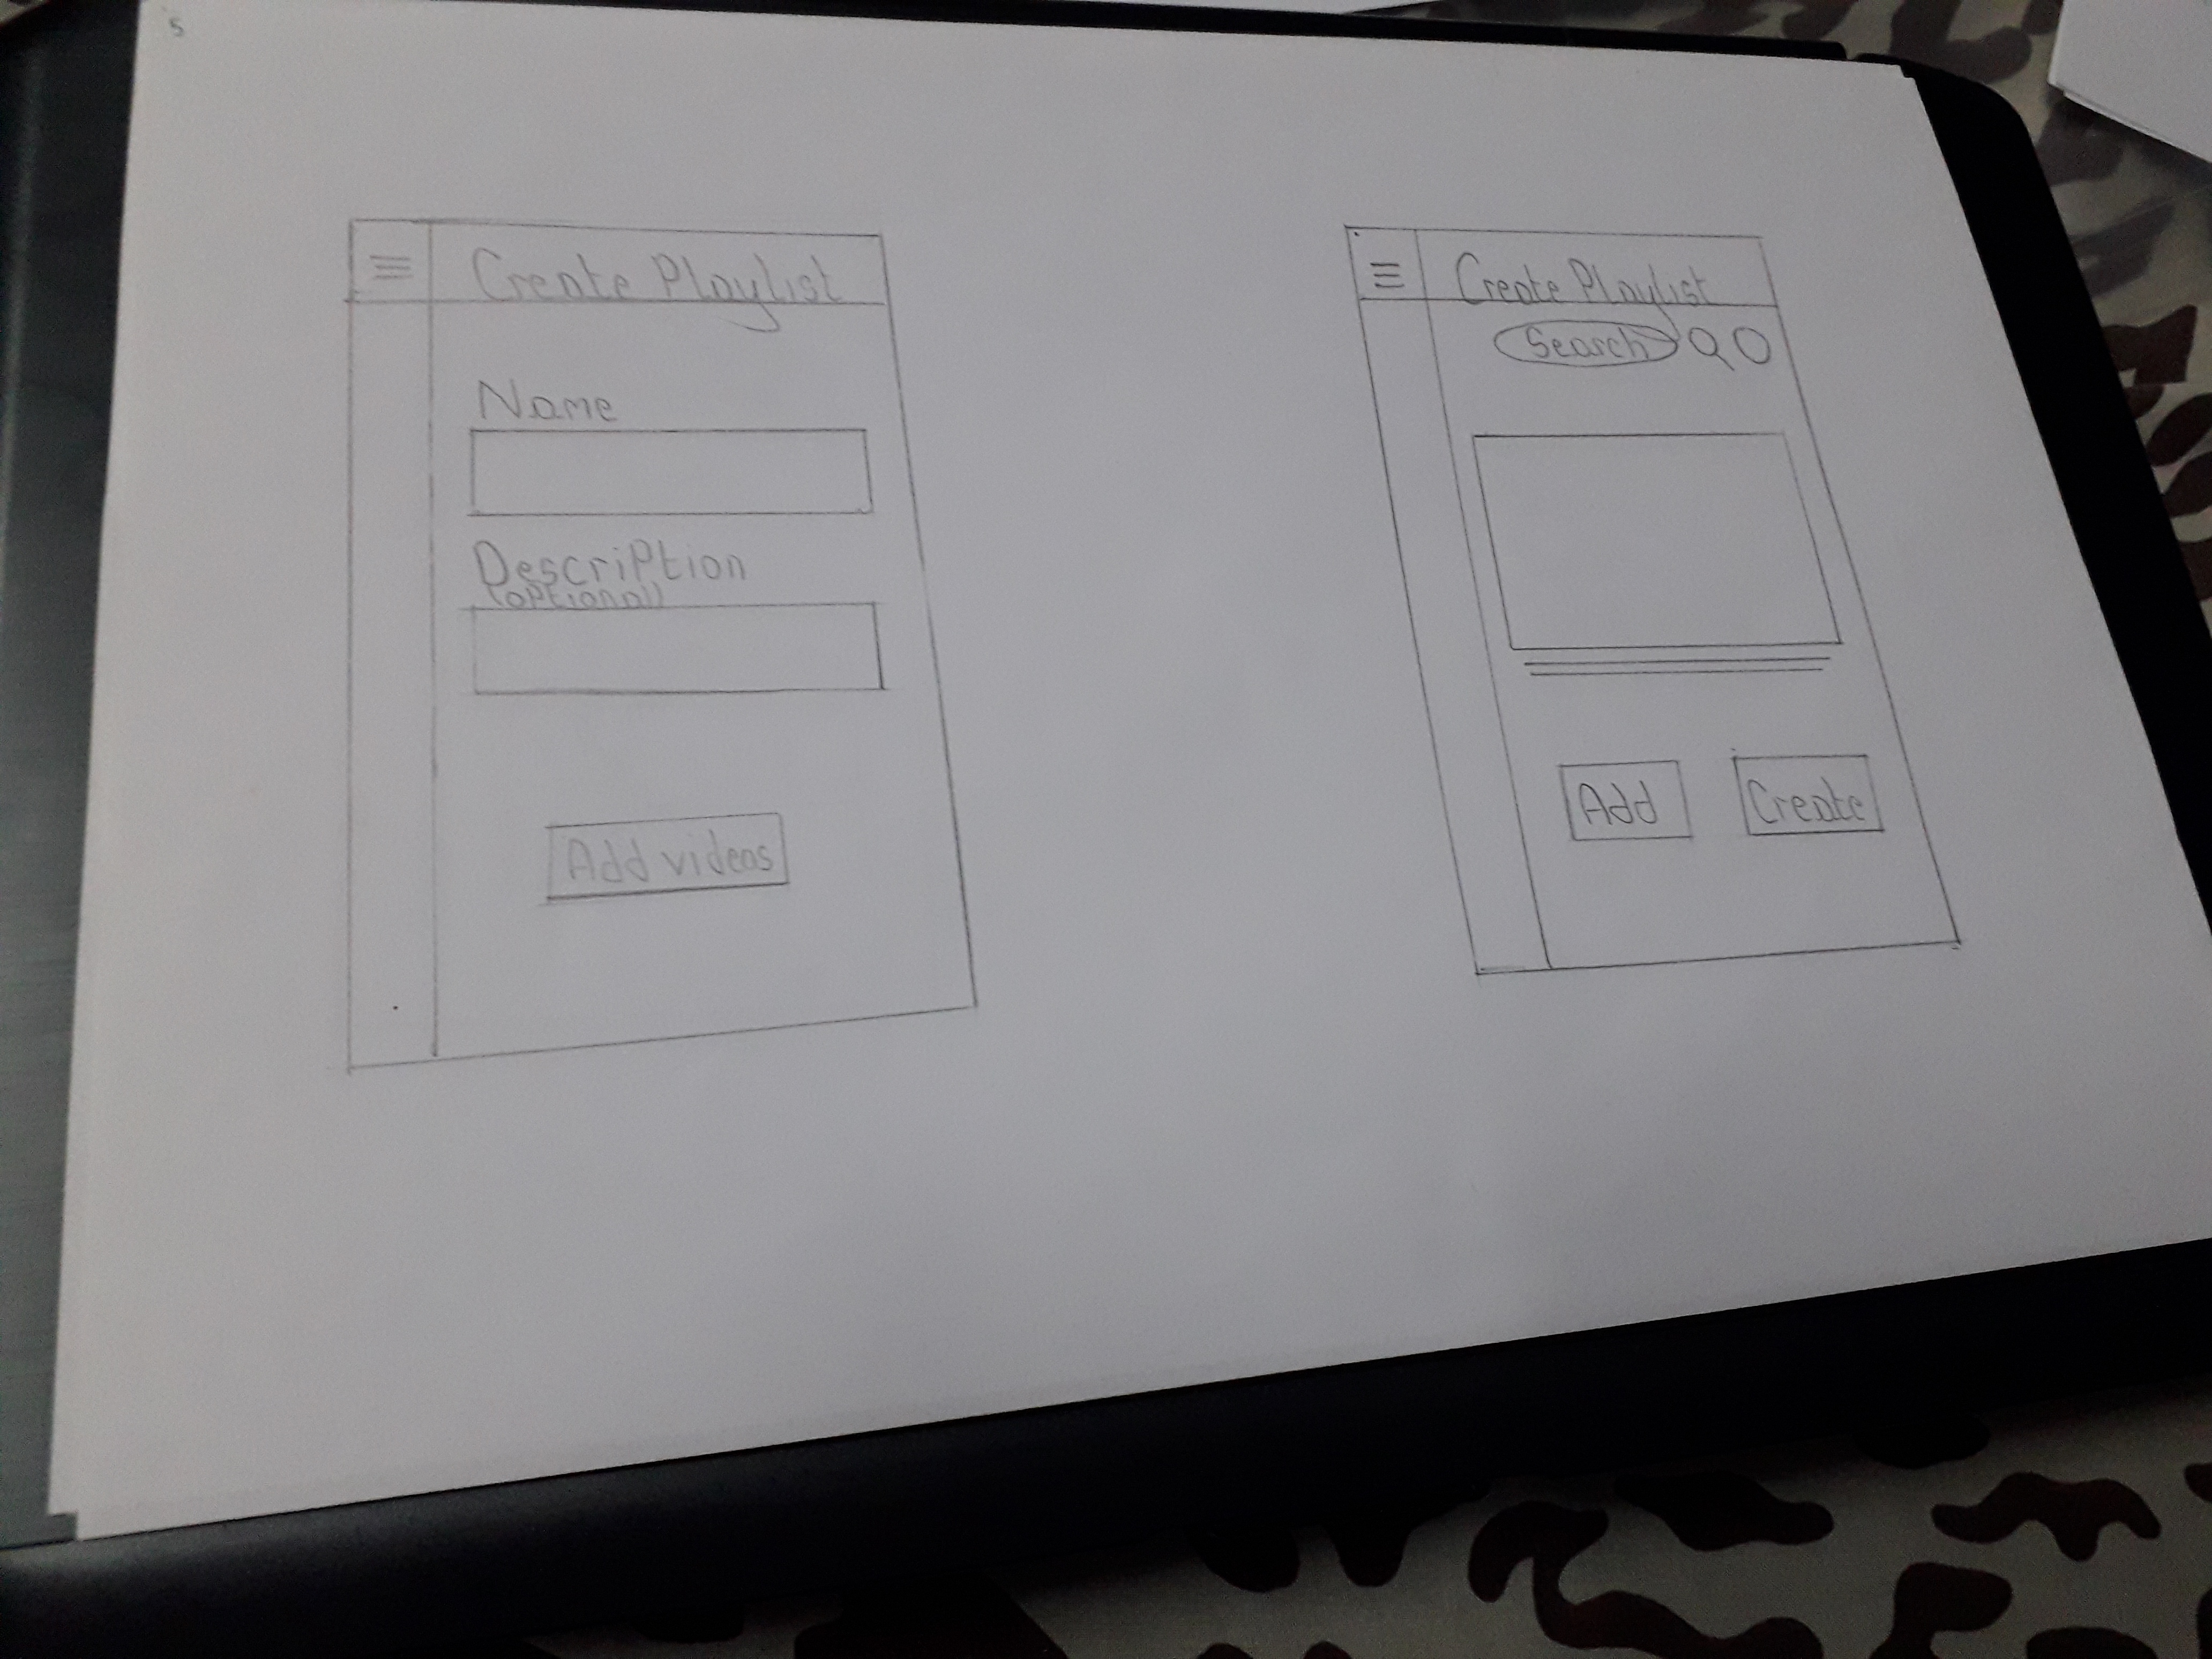 5
Create Playlist
Name
Description
(optional)
Add videos
Create Playlist
Search
Add
Create